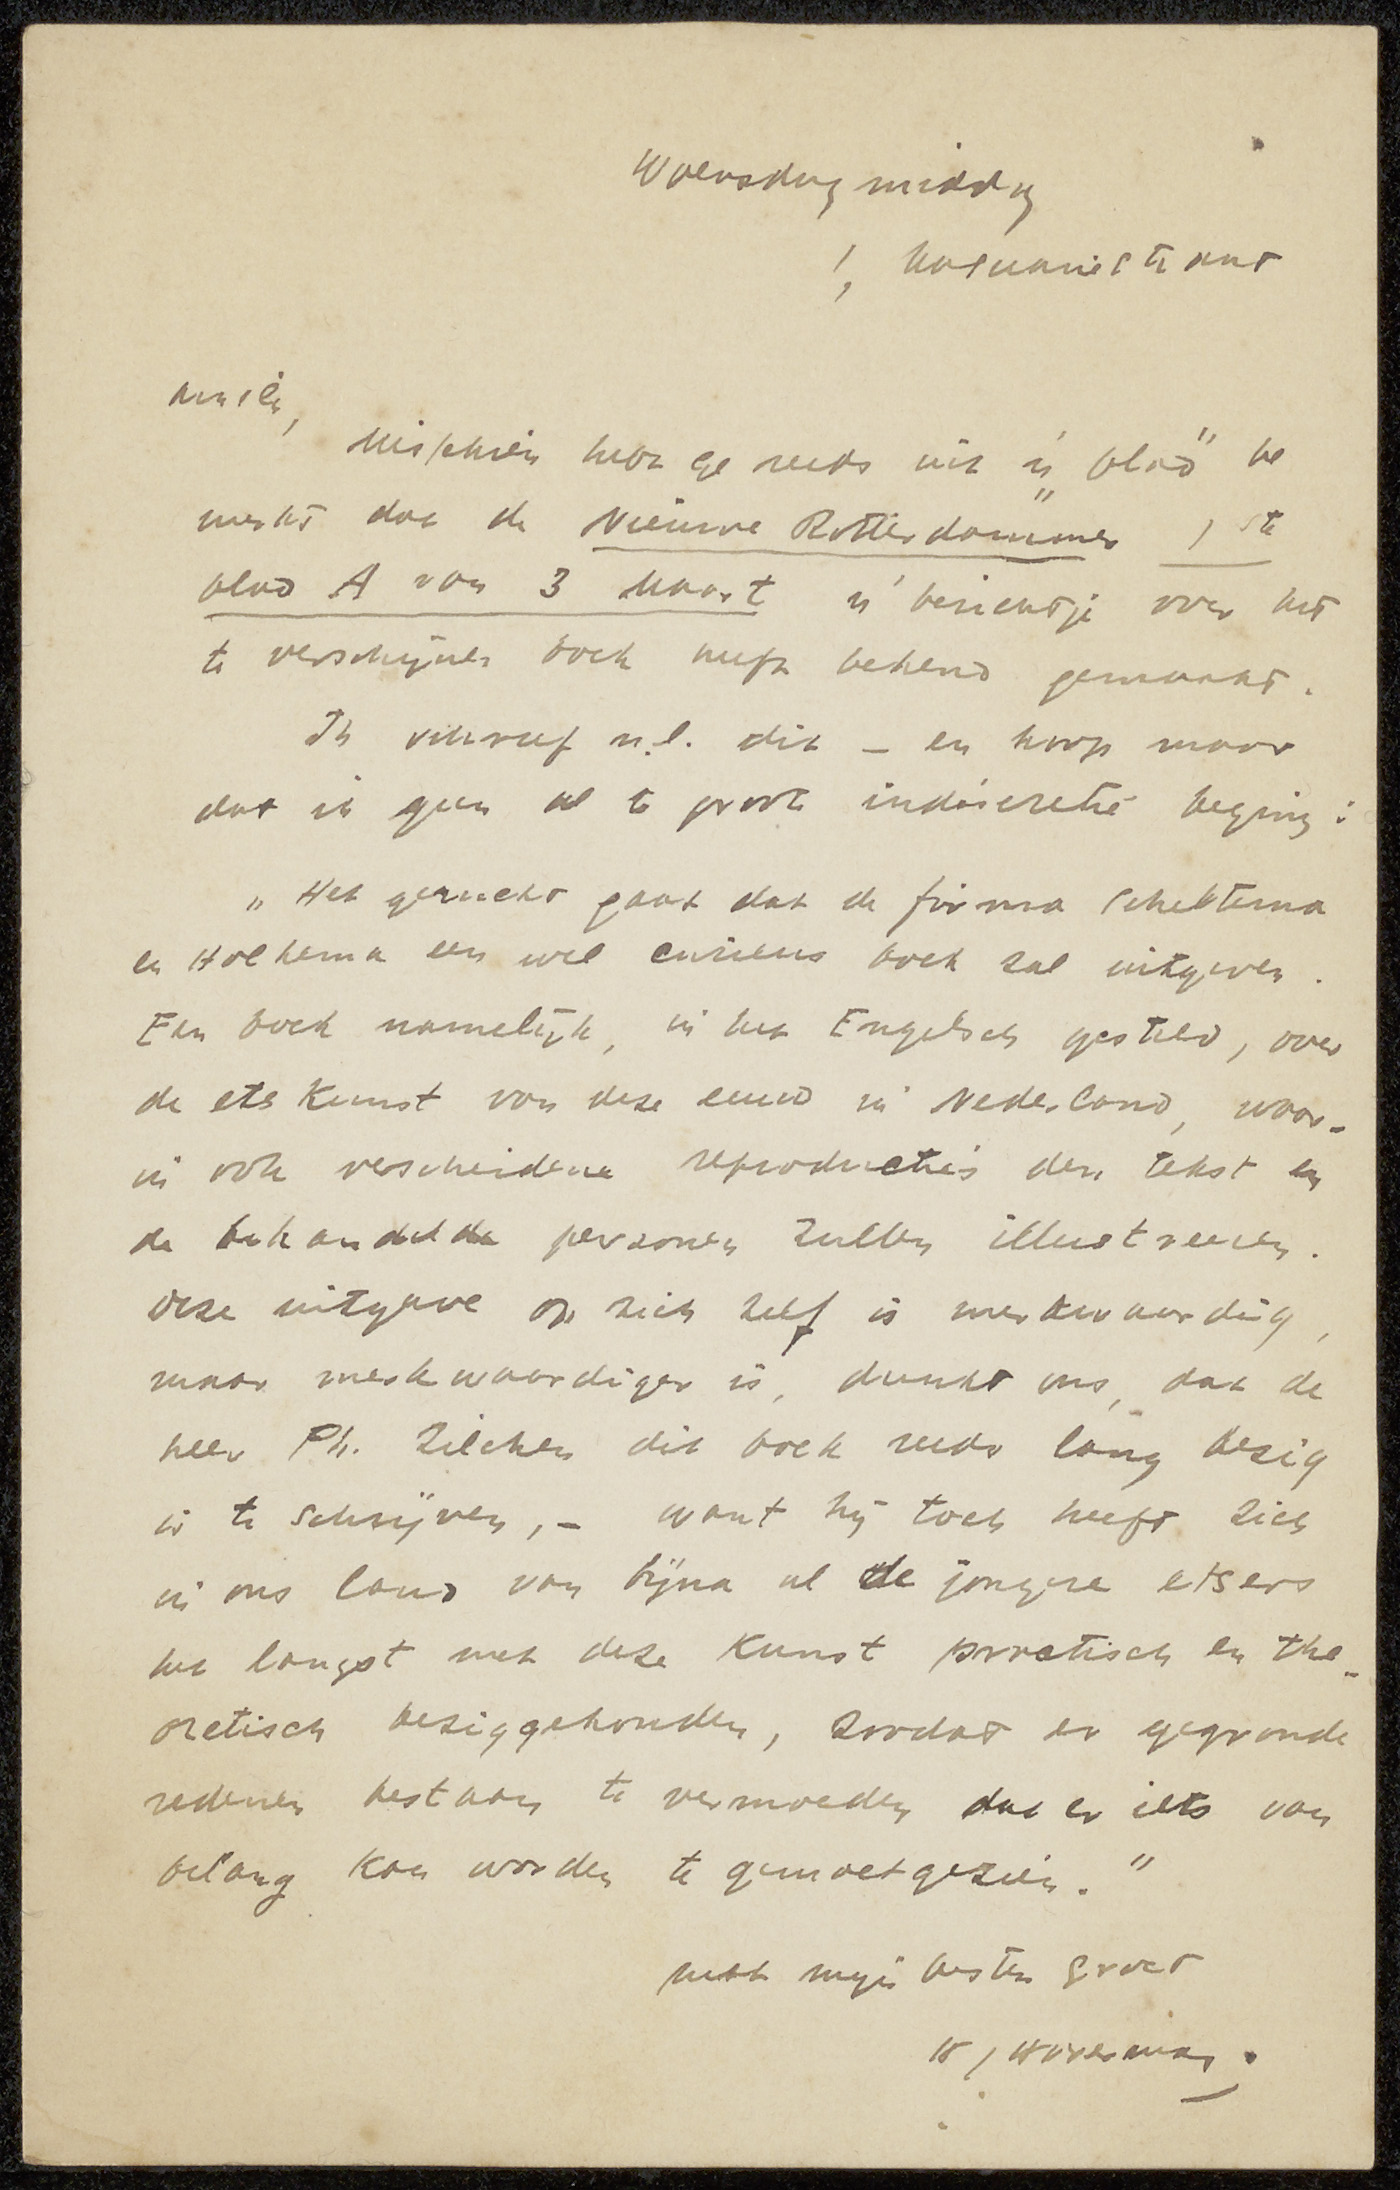 Woensdag middag
1, Kasuariestraat
Amice,
Misschien hebt ge reeds uit 'n „blad" be
merkt dat de Nieuwe Rotterdammer 1ste
blad A van 3 Maart 'n berichtje over het
te verschijnen boek heeft bekend gemaakt.
Ik schreef n.l. dit – en hoop maar
dat ik geen al te groote indiscretie beging:
„Het gerucht gaat dat de firma Scheltema
en Holkema een wel curieus boek zal uitgeven.
Een boek namelijk, in het Engelsch gesteld, over
de etskunst van deze eeuw in Nederland, waar-
in ook verscheidene reproductie's den tekst en
de behandelde personen zullen illustreeren.
Deze uitgave op zich zelf is merkwaardig,
maar merkwaardiger is, dunkt ons, dat de
heer Ph. Zilcken dit boek reeds lang bezig
is te schrijven, – want hij toch heeft zich
in ons land van bijna al de jongere etsers
het langst met deze Kunst practisch en the-
oretisch beziggehouden, zoodat er gegronde
redenen bestaan te vermoeden dat er iets van
belang kan worden te gemoetgezien."
met mijn besten groet
H, Haverman.